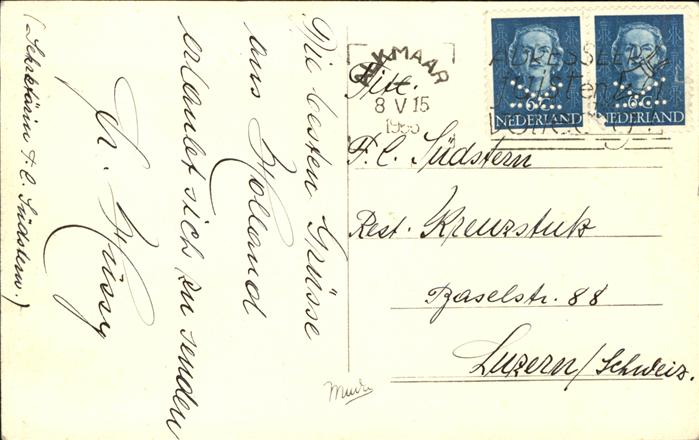 Die besten Grüsse
aus Holland
erlaubt sich zu senden
Hr. Hüssy
(Sekretärin F.C. Südstern.)
ALKMAAR
8 V 15
NEDERLAND
NEDERLAND
6c
6c
Titl.
F.C. Südstern
Rest. Kreuzstutz
Baselstr. 88
Luzern/Schweiz.